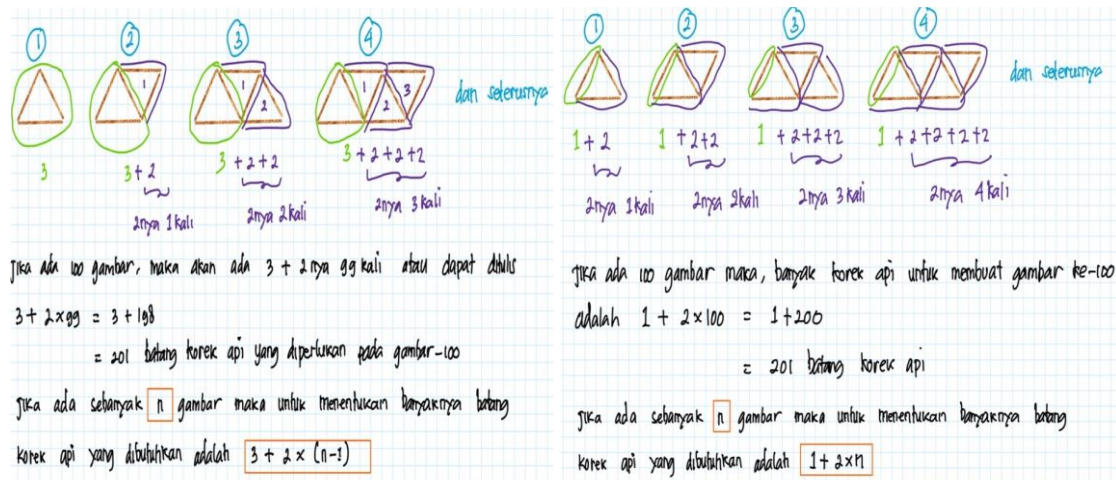 1 2 3 4
1 1 2 1 2 3
dan seterusnya
3 3+2 3+2+2 3+2+2+2
2nya 1 kali 2nya 2 kali 2nya 3 kali
Jika ada 100 gambar, maka akan ada 3 + 2 nya 99 kali atau dapat ditulis
3 + 2 x 99 = 3 + 198
= 201 batang korek api yang diperlukan pada gambar-100
Jika ada sebanyak n gambar maka untuk menentukan banyaknya batang
korek api yang dibutuhkan adalah 3 + 2 x (n-1)
1 2 3 4
dan seterusnya
1+2 1+2+2 1+2+2+2 1+2+2+2+2
2nya 1 kali 2nya 2 kali 2nya 3 kali 2nya 4 kali
Jika ada 100 gambar maka, banyak korek api untuk membuat gambar ke-100
adalah 1 + 2 x 100 = 1 + 200
= 201 batang korek api
Jika ada sebanyak n gambar maka untuk menentukan banyaknya batang
korek api yang dibutuhkan adalah 1 + 2 x n